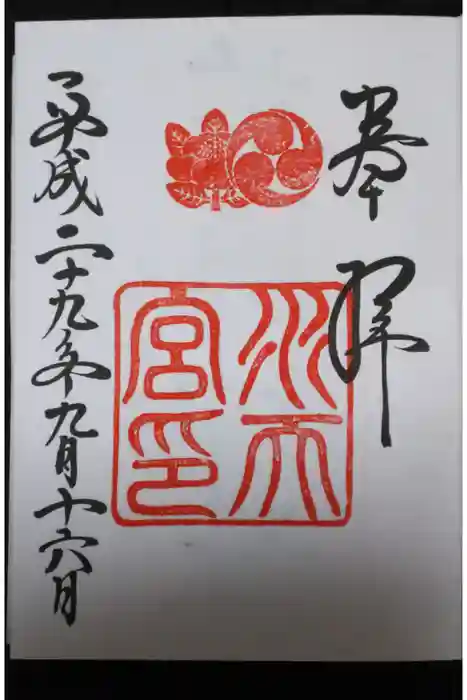 奉拝
水天
宮印
平成二十九年九月十六日